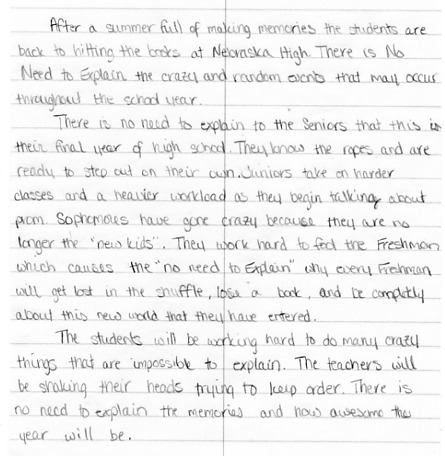 After a summer full of making memories the students are
back to hitting the books at Nebraska High. There is No
Need to Explain the crazy and random events that may occur
throughout the school year.
There is no need to explain to the Seniors that this is
their final year of high school. They know the ropes and are
ready to step out on their own. Juniors take on harder
classes and a heavier workload as they begin talking about
prom. Sophomores have gone crazy because they are no
longer the "new kids". They work hard to fool the Freshman
which causes the "no need to Explain" why every Freshman
will get lost in the shuffle, lose a book, and be completly
about this new world that they have entered.
The students will be working hard to do many crazy
things that are impossible to explain. The teachers will
be shaking their heads trying to keep order. There is
no need to explain the memories and how awesome the
year will be.